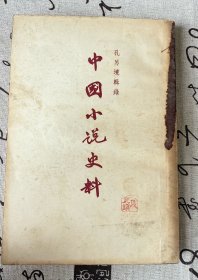 孔另境輯錄
中國小说史料